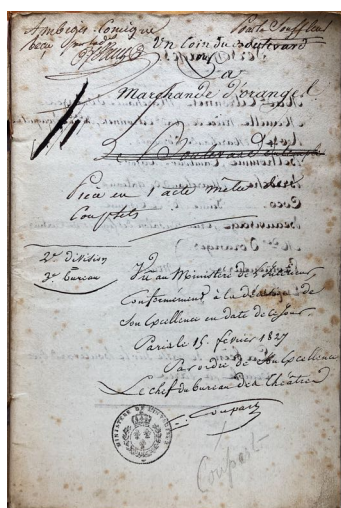 Ambigu-Comique
Pour le Souffleur
reçu
Un Coin du Boulevard
ou
La
Marchande d'oranges
Pièce en 1 acte mêlée de
Couplets
2e Division
3e Bureau
Vu au Ministère de l'intérieur,
Conformément à la décision de
Son Excellence en date de ce jour.
Paris le 15 février 1827
Par ordre de Son Excellence
Le chef du bureau des Théâtres
Coupart
MINISTERE DE L'INTERIEUR
Coupart